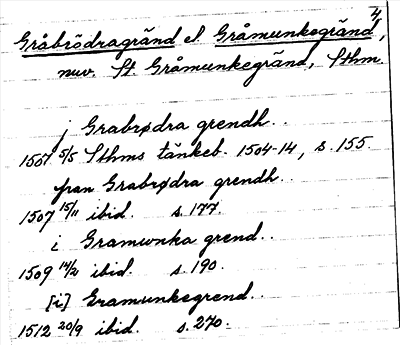 4
Gråbrödragränd el. Gråmunkegränd,
nuv. St. Gråmunkegränd, Sthm.
j Grabrødra grendh..
1507 5/5 Sthms tänkeb. 1504-14, s. 155.
fran Grabrødra grendh..
1507 15/11 ibid. s. 177.
i Gramwnka grend..
1509 14/2 ibid. s. 190.
[i] Gramunkegrend..
1512 20/9 ibid. s. 270.